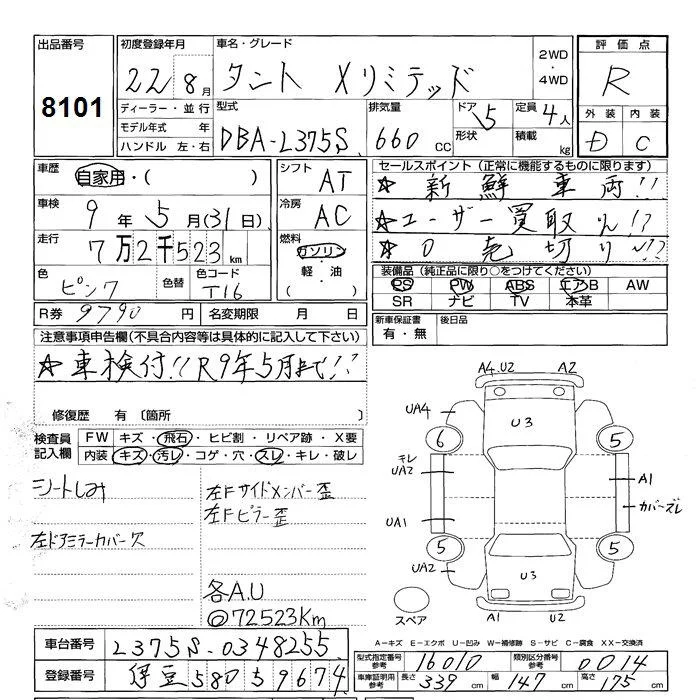 出品番号
8101
初度登録年月
22 8月
車名・グレード
タント Xリミテッド
2WD
・
4WD
評価点
R
外装 内装
D C
ディーラー・並行
モデル年式 年
ハンドル 左・右
型式
DBA-L375S
排気量
660 CC
ドア
5
形状
定員
4人
積載
kg
車歴
自家用・( )
車検
9年5月(31日)
走行
7万2千523km
色
ピンク
色替
色コード
T16
シフト
AT
冷房
AC
燃料
ガソリン
・
軽・油
( )
セールスポイント(正常に機能するものに限ります)
☆ 新鮮車両!!
☆ユーザー買取り!?
☆ 0 売切り!!?
装備品(純正品に限り○をつけてください)
PS PW ABS エアB AW
SR ナビ TV 本革
R券 9790円
名変期限 月 日
新車保証書
有・無
後日品
注意事項申告欄(不具合内容等は具体的に記入して下さい)
☆車検付!!R9年5月まで!!
修復歴 有〔箇所 〕
検査員
記入欄
FW キズ・飛石・ヒビ割・リペア跡・X要
内装 キズ・汚レ・コゲ・穴・スレ・キレ・破レ
シートしみ
左ドアミラーカバー欠
左Fサイドメンバー歪
左Fピラー歪
各A.U
◎72523Km
A4.U2 A2
UA4
U3
6 5
キレ
UA2
A1
カバーズレ
UA1
5 5
UA2
U3
スペア
A1 U2
A-キズ E-エクボ U-凹み W-補修跡 S-サビ C-腐食 XX-交換済
車台番号 L375S-0348255
登録番号 伊豆580ら9674
型式指定番号
参考
16010
類別区分番号
参考
0014
車庫証明用
参考
長さ 339cm 幅 147cm 高さ 175cm